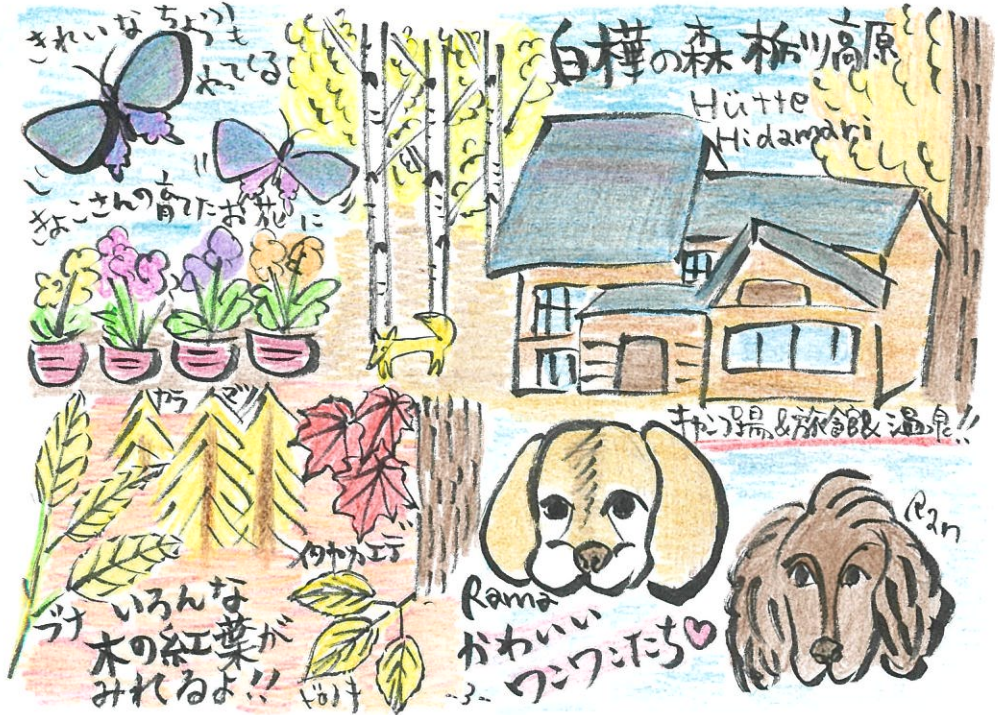 きれいなちょうちょも
やってくる
きよこさんの育てたお花に
白樺の森 栃ツ高原
Hütte
Hidamari
キャンプ場&旅館&温泉!!
カラマツ
イタヤカエデ
ブナ
いろんな
木の紅葉が
みれるよ!!
Rama
Ran
かわいい
ワンワンたち♡
-3-